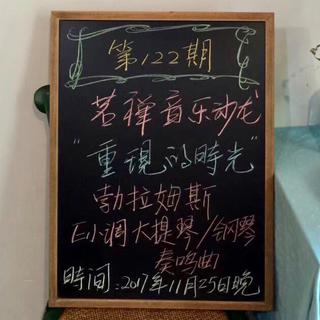 第122期
茗禅音乐沙龙
"重現的時光"
勃拉姆斯
E小调大提琴/钢琴
奏鸣曲
時间:2017年11月25日晚